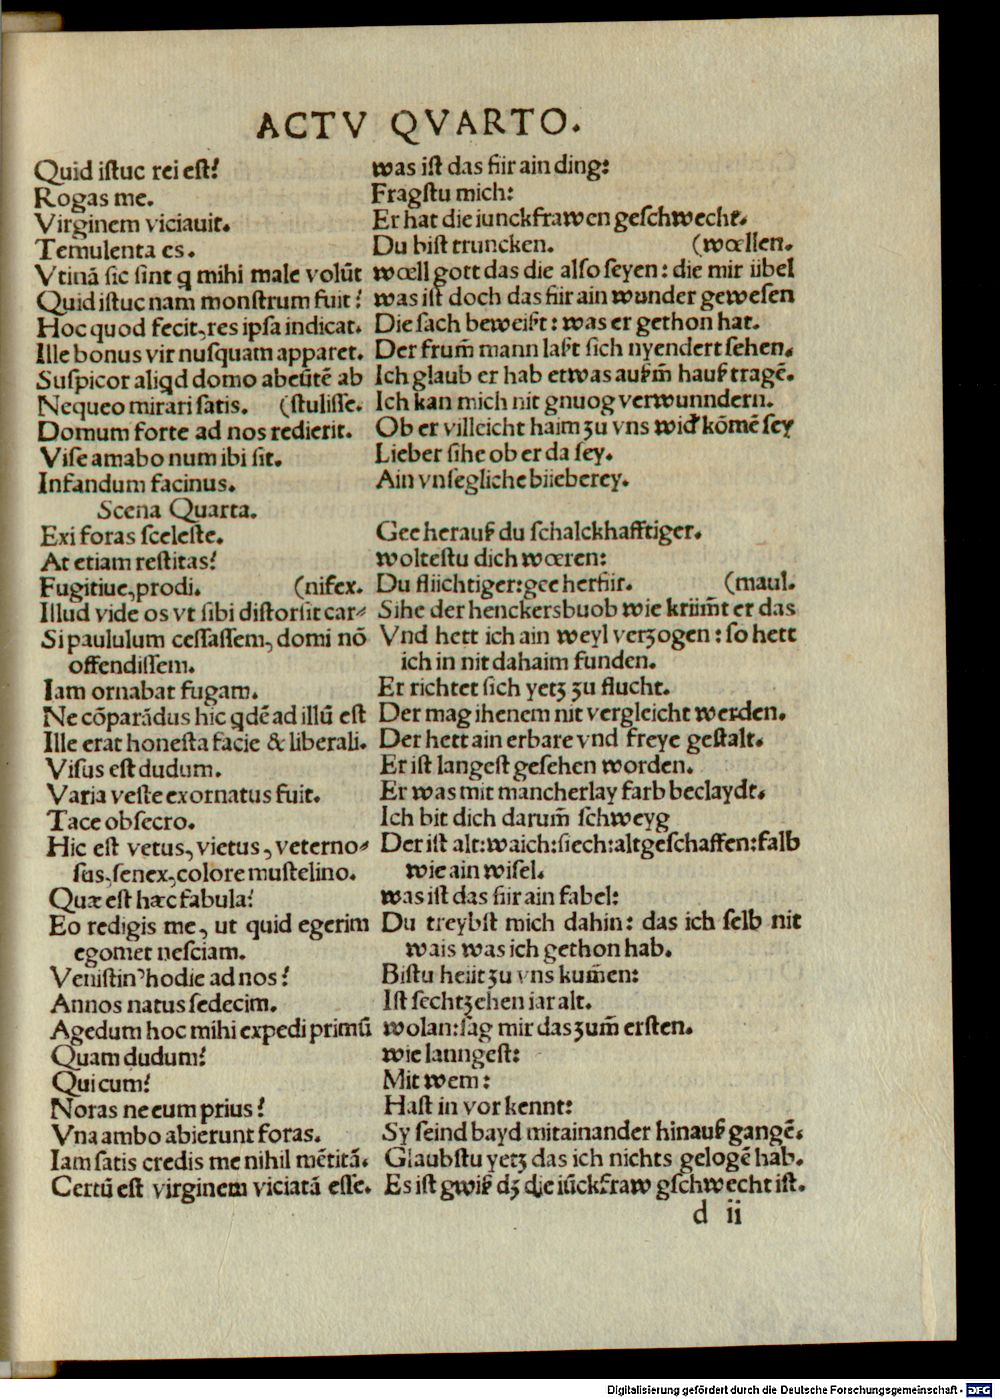 ACTV QVARTO.
Quid iſtuc rei eſt? was iſt das für ain ding:
Rogas me. Fragſtu mich:
Virginem viciauit. Er hat die iunckfrawen geſchwecht.
Temulenta es. Du biſt truncken. (wœllen.
Vtinā ſic ſint q mihi male volūt wœll gott das die alſo ſeyen: die mir übel
Quid iſtuc nam monſtrum fuit? was iſt doch das für ain wunder geweſen
Hoc quod fecit, res ipſa indicat. Die ſach beweißt: was er gethon hat.
Ille bonus vir nuſquam apparet. Der frum̄ mann laßt ſich nyendert ſehen.
Suſpicor aliqd domo abeūtē ab Ich glaub er hab etwas außm̄ hauß tragē.
Nequeo mirari ſatis. (ſtuliſſe. Ich kan mich nit gnuog verwunndern.
Domum forte ad nos redierit. Ob er villeicht haim zu vns wid' kōmē ſey
Viſe amabo num ibi ſit. Lieber ſihe ob er da ſey.
Infandum facinus. Ain vnſegliche büeberey.
Scena Quarta.
Exi foras ſceleſte. Gee herauß du ſchalckhafftiger.
At etiam reſtitas? wolteſtu dich wœren:
Fugitiue, prodi. (nifex. Du flüchtiger: gee herfür. (maul.
Illud vide os vt ſibi diſtorſit car⸗ Sihe der henckersbuob wie krüm̄t er das
Si paululum ceſſaſſem, domi nō Vnd hett ich ain weyl verzogen: ſo hett
offendiſſem. ich in nit dahaim funden.
Iam ornabat fugam. Er richtet ſich yetz zu flucht.
Ne cōparādus hic qdē ad illū eſt Der mag ihenem nit vergleicht werden.
Ille erat honeſta facie & liberali. Der hett ain erbare vnd freye geſtalt.
Viſus eſt dudum. Er iſt langeſt geſehen worden.
Varia veſte exornatus fuit. Er was mit mancherlay farb beclaydt.
Tace obſecro. Ich bit dich darum̄ ſchweyg
Hic eſt vetus, vietus, veterno⸗ Der iſt alt: waich: ſiech: altgeſchaffen: falb
ſus, ſenex, colore muſtelino. wie ain wiſel.
Quæ eſt hæc fabula? was iſt das für ain fabel:
Eo redigis me, ut quid egerim Du treybſt mich dahin: das ich ſelb nit
egomet neſciam. wais was ich gethon hab.
Veniſtin' hodie ad nos? Biſtu heüt zu vns kum̄en:
Annos natus ſedecim. Iſt ſechtzehen iar alt.
Agedum hoc mihi expedi primū wolan: ſag mir das zum̄ erſten.
Quam dudum? wie lanngeſt:
Qui cum? Mit wem:
Noras ne eum prius? Haſt in vor kennt:
Vna ambo abierunt foras. Sy ſeind bayd mitainander hinauß gangē.
Iam ſatis credis me nihil mētitā. Glaubſtu yetz das ich nichts gelogē hab.
Certū eſt virginem viciatā eſſe. Es iſt gwiß dz die iūckfraw gſchwecht iſt.
d ii
Digitalisierung gefördert durch die Deutsche Forschungsgemeinschaft - DFG